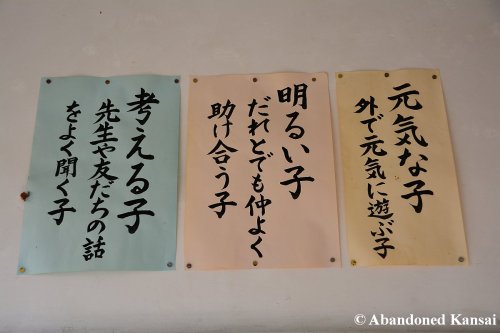 元気な子
外で元気に遊ぶ子
明るい子
だれとでも仲よく
助け合う子
考える子
先生や友だちの話
をよく聞く子
© Abandoned Kansai